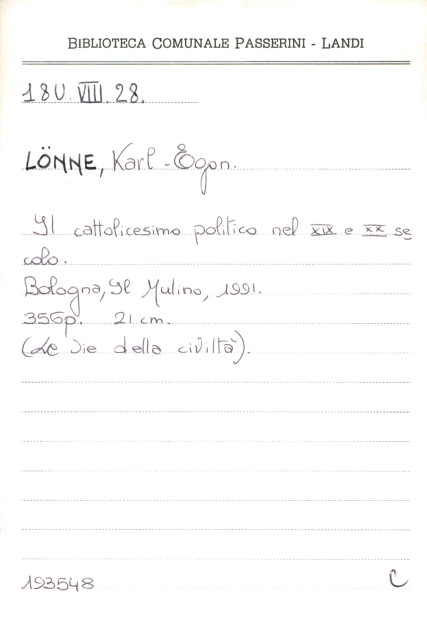 BIBLIOTECA COMUNALE PASSERINI - LANDI
18U. VIII. 28.
LÖNNE, Karl-Egon.
Il cattolicesimo politico nel XIX e XX se
colo.
Bologna, Il Mulino, 1991.
356p. 21 cm.
(Le vie della civiltà).
193548 C